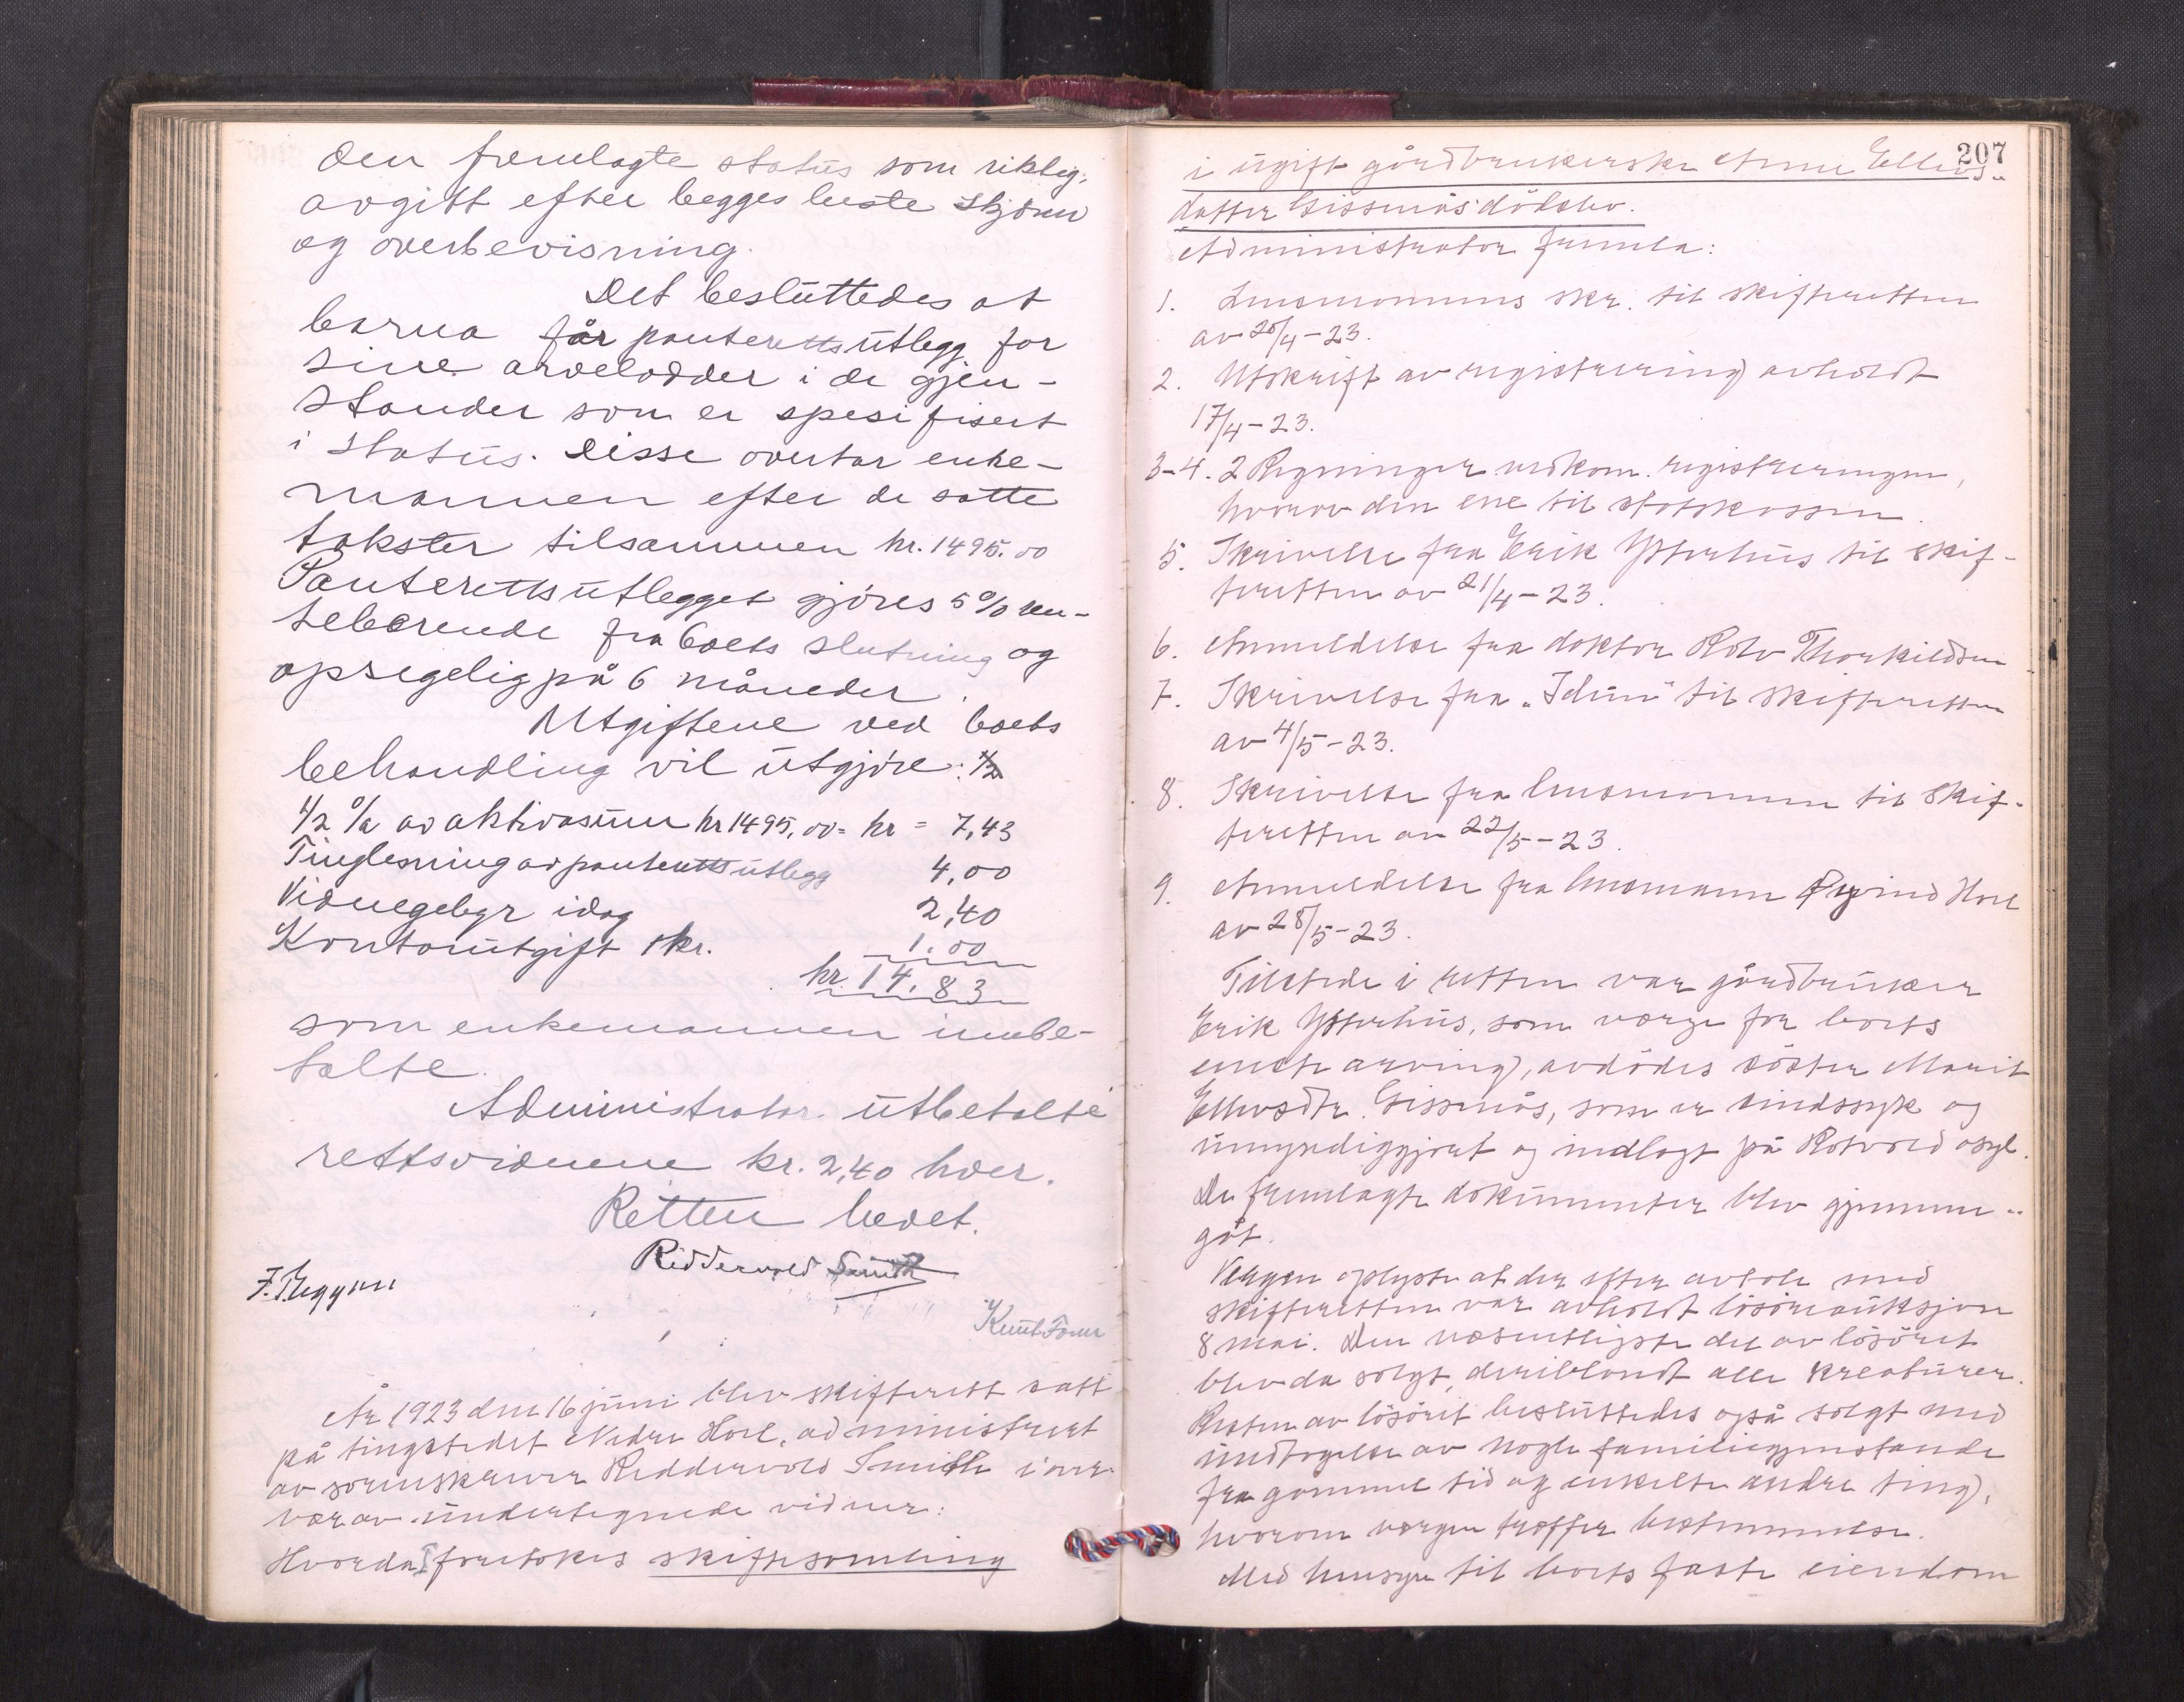 den fremlagte status som riktig,
avgitt efter begges beste skjønn
og overbevisning.
Det besluttedes at
barna får panterettsutlegg for
sine arvelodder i de gjen-
stander som er spesifisert
i status. Disse overtar enke-
mannen efter de satte
takster tilsammen kr. 1495.00
Panterettsutlegget gjöres 5% ren-
tebærende fra boets slutning og
opsigelig på 6 måneder.
Utgiftene ved boets
behandling vil utgjöre:
1/2 % av aktivasum kr 1495,00 = kr = 7,43
Tinglesning av panterettsutlegg 4,00
Vidnegebyr idag 2,40
Kontorutgift 1 kr. 1.00
kr. 14.83
som enkemannen innbe-
talte.
Administrator utbetalte
rettsvidnene kr. 2,40 hver.
Retten hevet.
Riddervold Smith
Knut Foner
År 1923 den 16 juni blev skifterett satt
på tingstedet Nedre Hoel, administrert
av sorenskriver Riddervold Smith i over-
vær av undertegnede vidner:
Hvorda foretokes skiftesamling
207
i ugift gårdbrukerske Anne Ellevs-
datter Gissnås dödsbo.
Administrator fremla:
1. Lensmannens skr. til skifteretten
av 20/4-23.
2. Utskrift av registrering avholdt
17/4-23.
3-4. 2 Regninger vedkom. registreringen,
hvorav den ene til statskassen.
5. Skrivelse fra Erik Ytterhus til skif-
teretten av 21/4-23.
6. Anmeldelse fra doktor Rolv Thorkildsen
7. Skrivelse fra "Idun" til skifteretten
av 4/5-23.
8. Skrivelse fra lensmannen til skif-
teretten av 22/5-23.
9. Anmeldelse fra lensmann Øyvind Hoel
av 28/5-23.
Tilstede i retten var gårdbruker
Erik Ytterhus, som verge for boets
eneste arving, avdödes söster Marit
Ellevsdtr. Gissnås, som er sindssyk og
umyndiggjort og indlagt på Rotvold asyl.
De fremlagte dokumenter blev gjennem-
gåt.
Vergen oplyste at der efter avtale med
skifteretten var avholdt lösöreauksjon
8 mai. Den væsentligste del av lösöret
blev da solgt, deriblandt alle kreaturer.
Resten av lösöret besluttedes også solgt med
undtagelse av nogle familiegjenstande
fra gammel tid og enkelte andre ting,
hvorom vergen træffer bestemmelse.
Med hensyn til boets faste eiendom